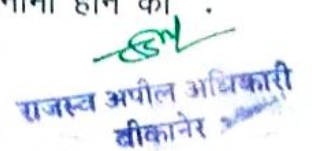 होने का .
राजस्व अपील अधिकारी
बीकानेर